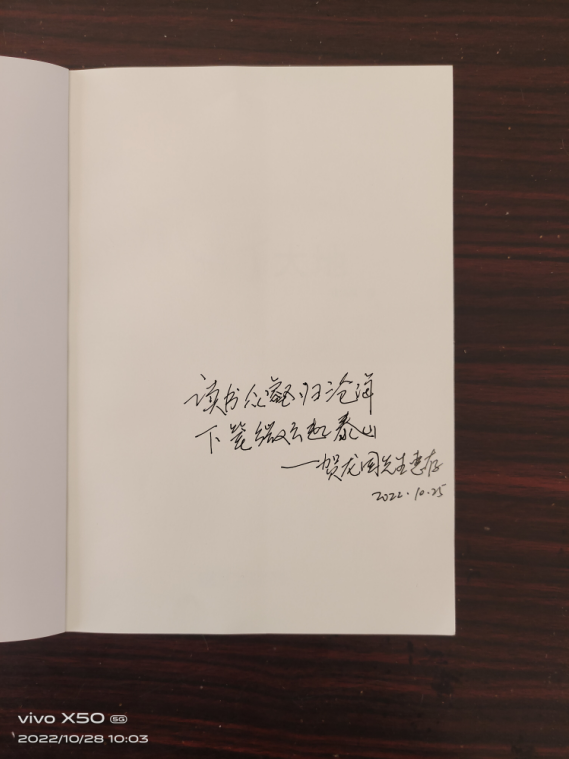 读书众壑归沧海
下笔微云起泰山
一贺龙国先生惠存
2022.10.25
vivo X50 5G
2022/10/28 10:03